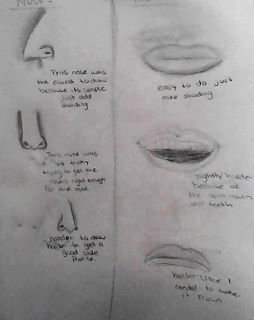 Nose
This nose was
the easiest to draw
because its simple
just add
shading
This nose was
trying to get the
right enough
for the nose
harder to draw
harder to get a
good side
Profile.
easy to do just
more shading
slightly harder
because of
the open mouth
and teeth
harder like I
needed to make
it frown